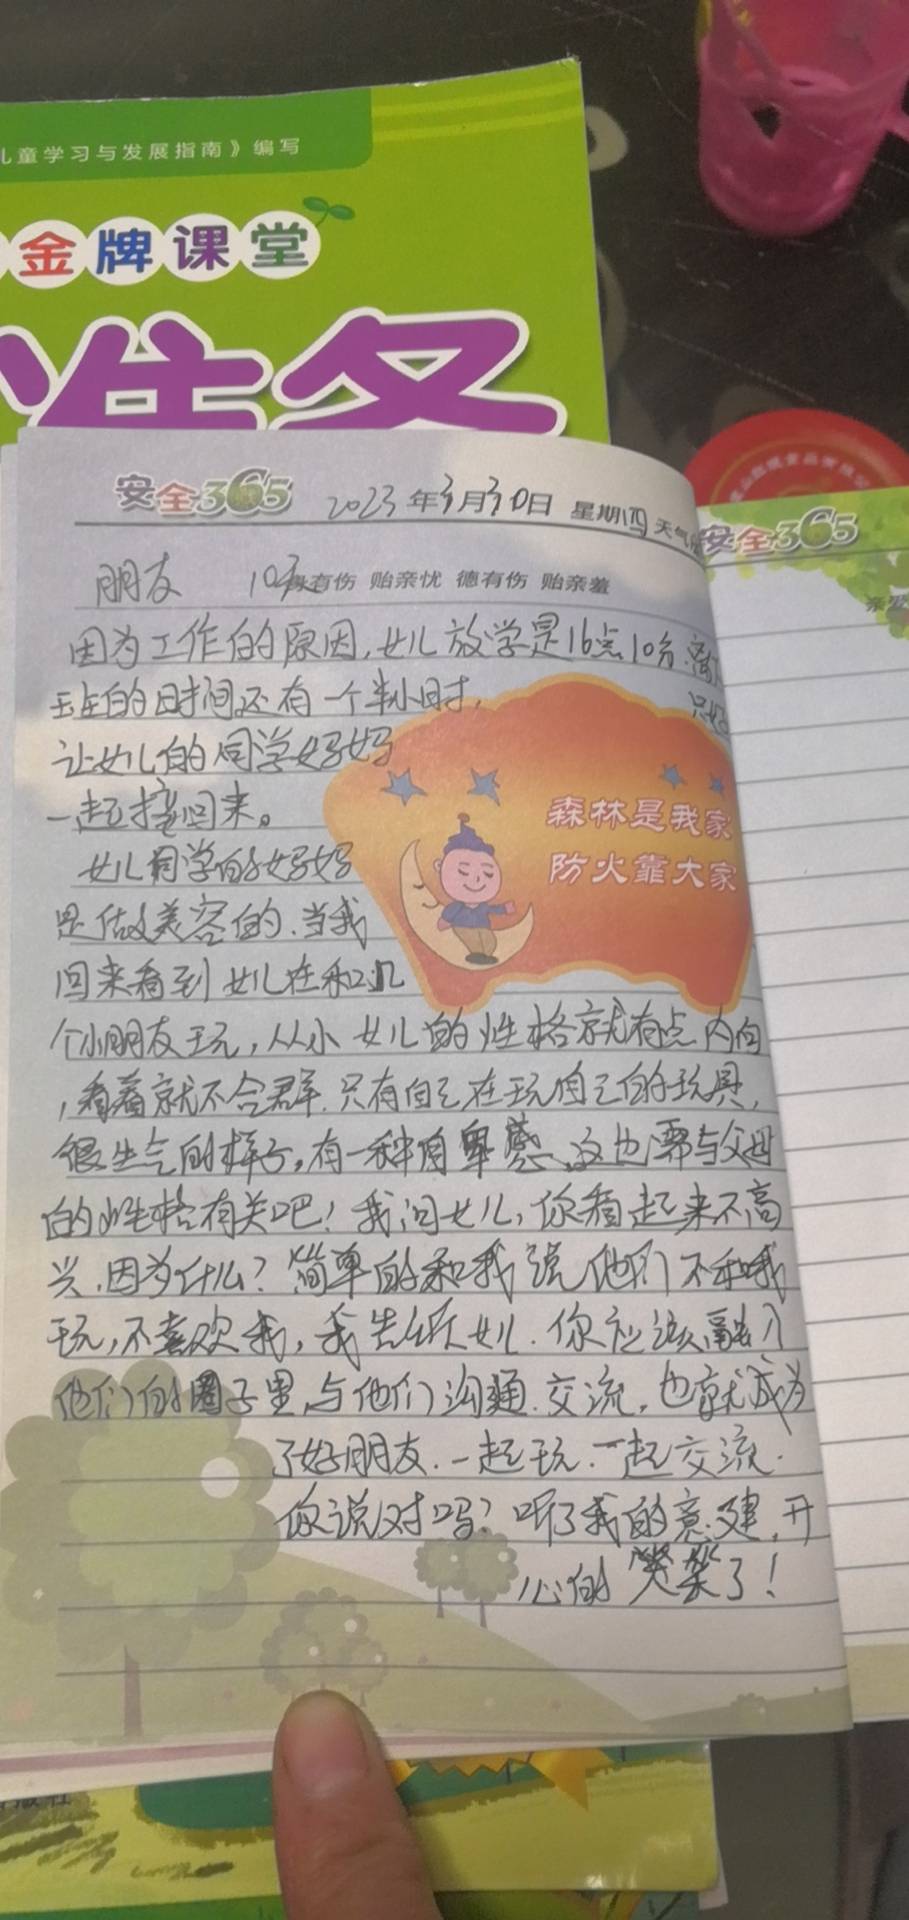 儿童学习与发展指南》编写
金牌课堂
准备
安全365 2023年3月30日 星期四 天气
安全365
朋友 10天 身有伤 贻亲忧 德有伤 贻亲羞
亲爱
因为工作的原因,女儿放学是16点10分.离
玩的时间还有一个半小时,
只好
让女儿的同学妈妈
一起接回来。
女儿同学的妈妈
是做美容的.当我
回来看到女儿在和几
个小朋友玩,从小女儿的性格就有点内向
,看着就不合群.只有自己在玩自己的玩具,
很生气的样子,有一种自卑感.这也需与父母
的性格有关吧!我问女儿,你看起来不高
兴.因为什么?简单的和我说他们不和我
玩,不喜欢我,我告诉女儿.你应该融入
他们的圈子里,与他们沟通.交流,也就成为
了好朋友.一起玩.一起交流.
你说对吗?听了我的意建,开
心的笑笑了!
森林是我家
防火靠大家